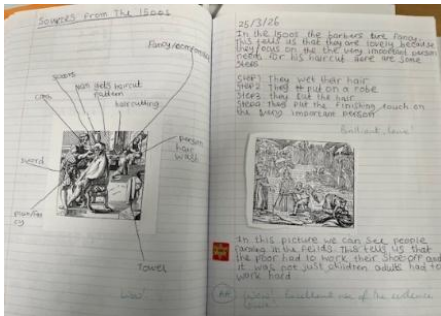 Sources from The 1500s
fancy/ornaments
spears
man gets haircut
pattern
haircutting
cane
sword
person
hair
wash
Towel
25/3/26
In the 1500s the barbers are fancy.
This tells us that they are lovely because
they focus on the the very important person
needs for his haircut Here are some
Steps
Step 1 They wet their hair
Step 2 They put on a robe
Step 3 they cut the hair
Step 4 they put the finishing touch on
the very important person
Brilliant, love!
In this picture we can see people
farming in the feilds. This tells us that
the poor had to work their shoe off and
it was not just children adults had to
work hard
Wow!
Wow! Excellent use of the evidence